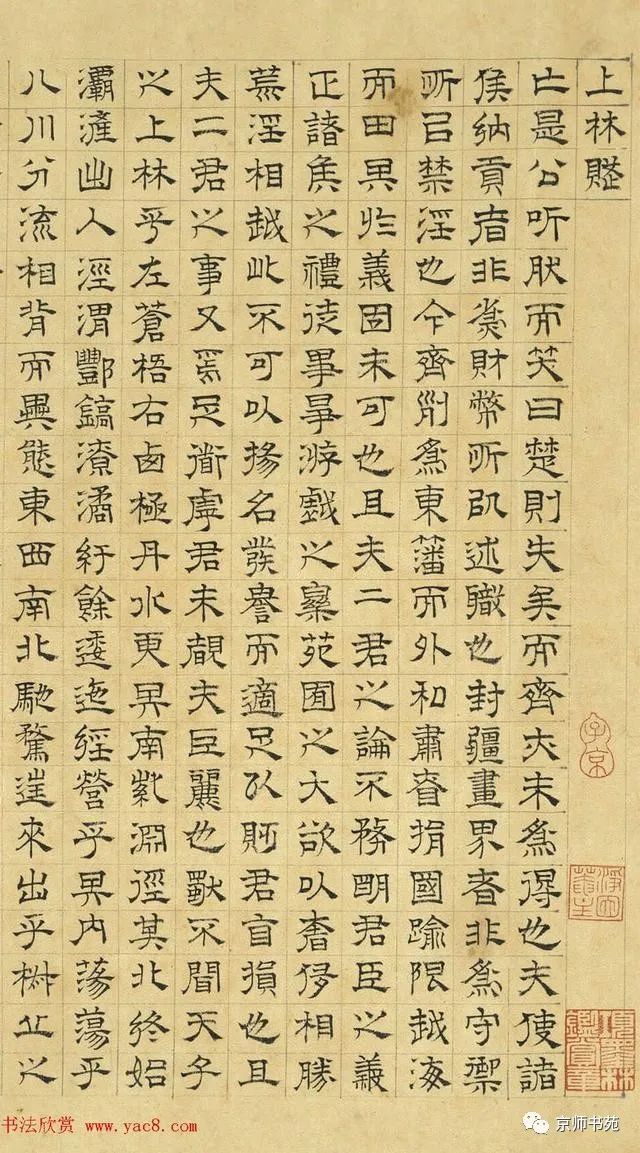 上林賦
亡是公听肰而笑曰楚則失矣而齊亦未爲得也夫使諸
侯納貢者非爲財幣所㠯述職也封疆畫界者非爲守禦
所㠯禁淫也今齊列爲東藩而外和肅眘捐國踰限越海
而田其於義固未可也且夫二君之論不務明君臣之義
正諸侯之禮徒事爭游戲之樂苑囿之大欲以奢侈相勝
荒淫相越此不可以揚名發譽而適足以貶君自損也且
夫二君之事又焉足道虖君未覩夫巨麗也獨不聞天子
之上林乎左蒼梧右西極丹水更其南紫淵徑其北終始
灞滻出入涇渭酆鎬潦潏紆餘逶迤經營乎其內蕩蕩乎
八川分流相背而異態東西南北馳騖往來出乎椒丘之
子京
項墨林鑑賞章
书法欣赏 www.yac8.com
京师书苑